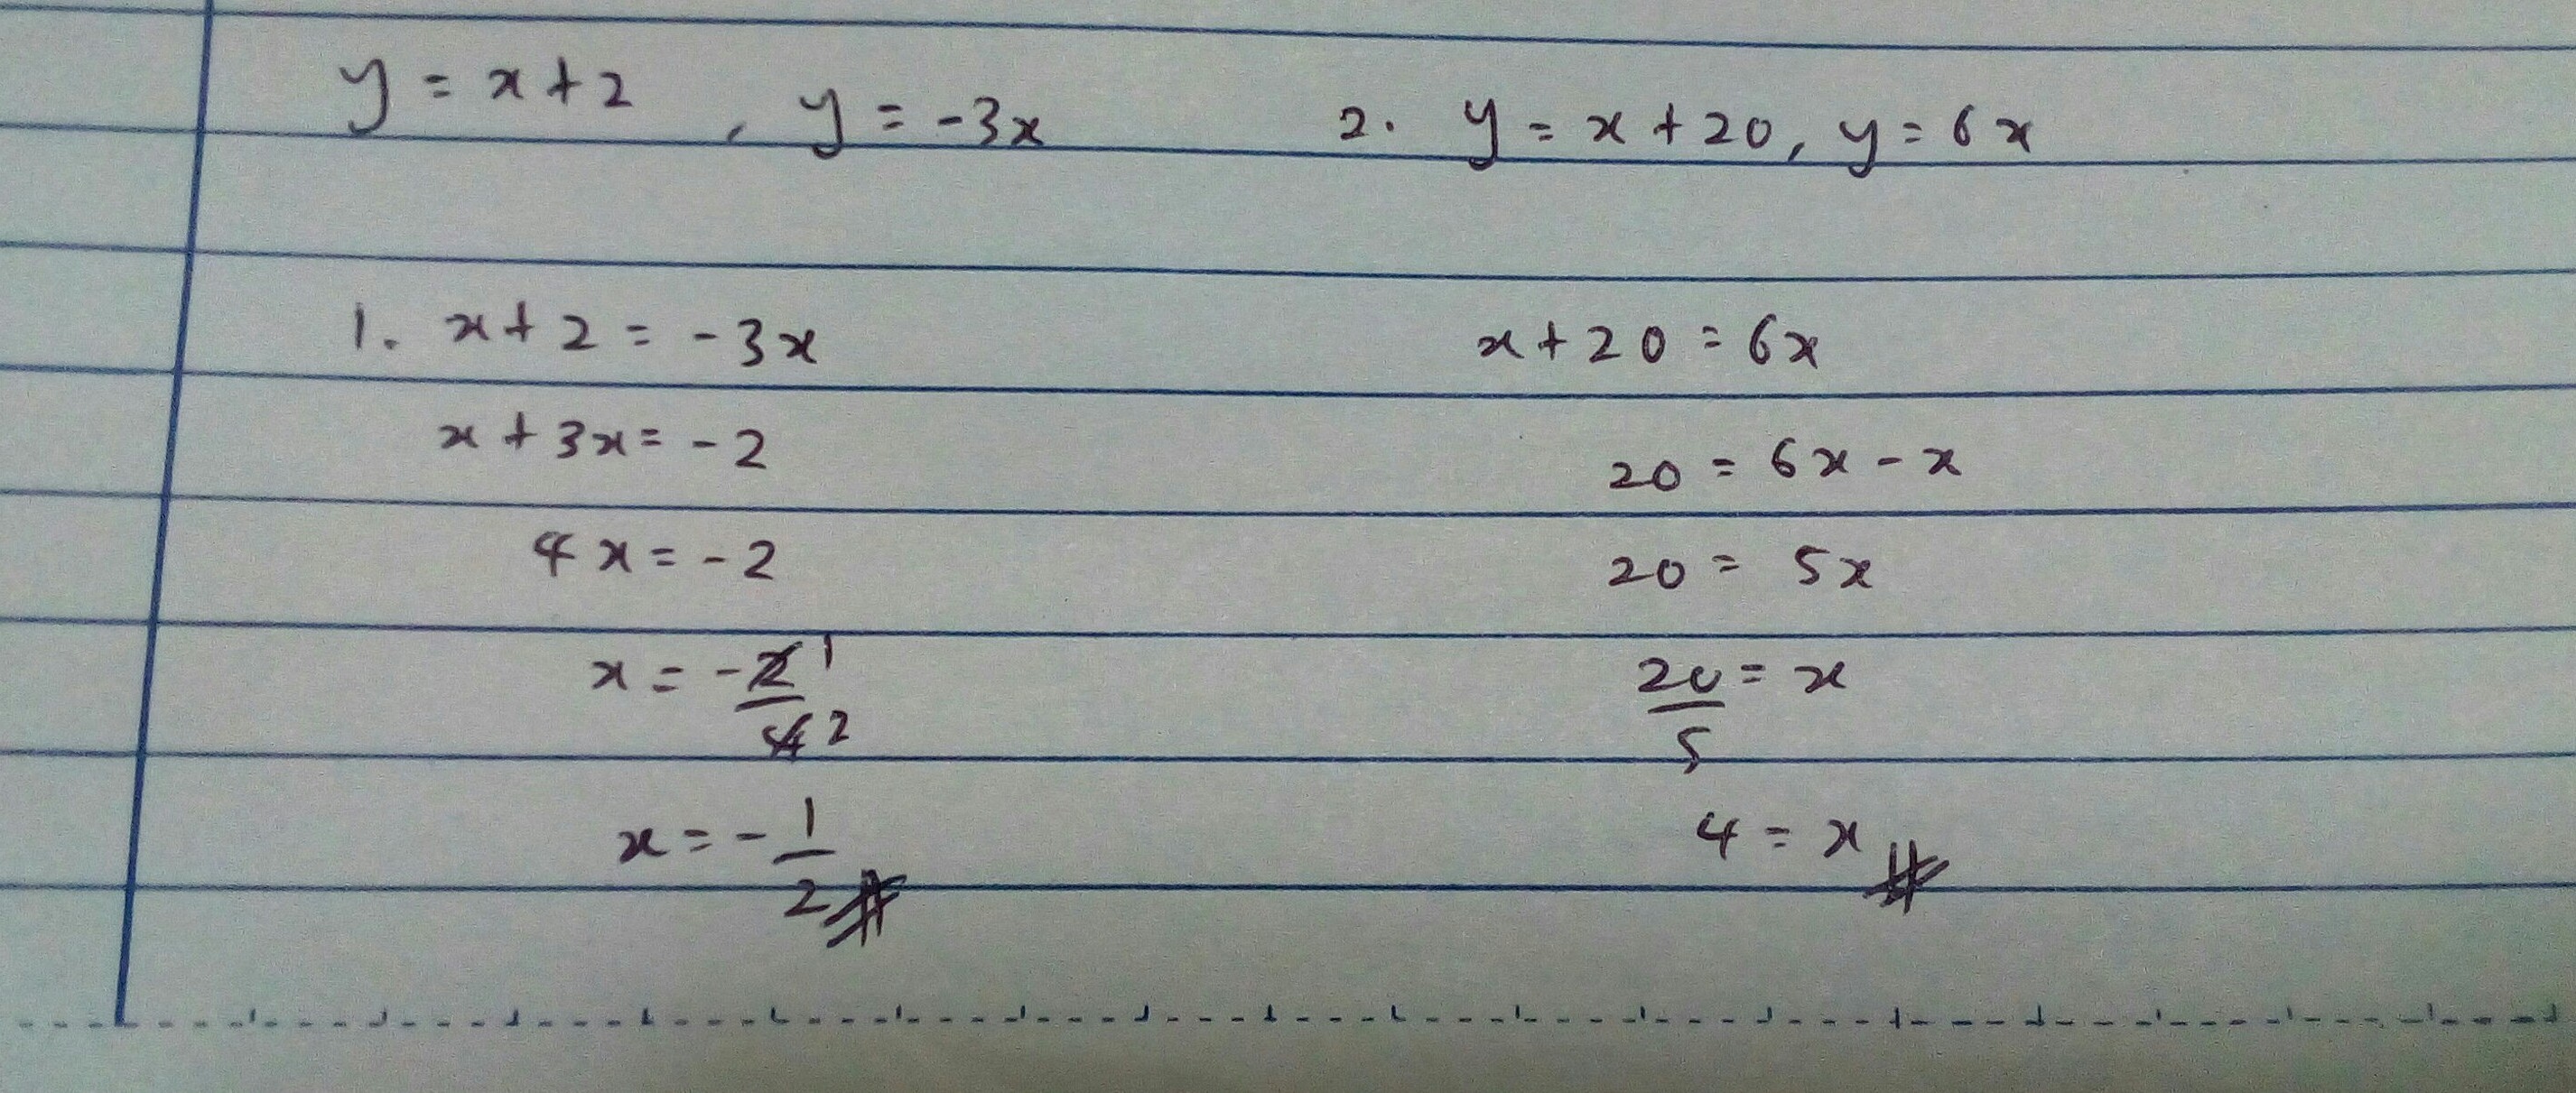 y = x + 2 , y = -3x
2. y = x + 20, y = 6x
1. x + 2 = -3x
x + 3x = -2
4x = -2
x = -2 1
4 2
x = - 1
2 //
x + 20 = 6x
20 = 6x - x
20 = 5x
20 = x
5
4 = x //